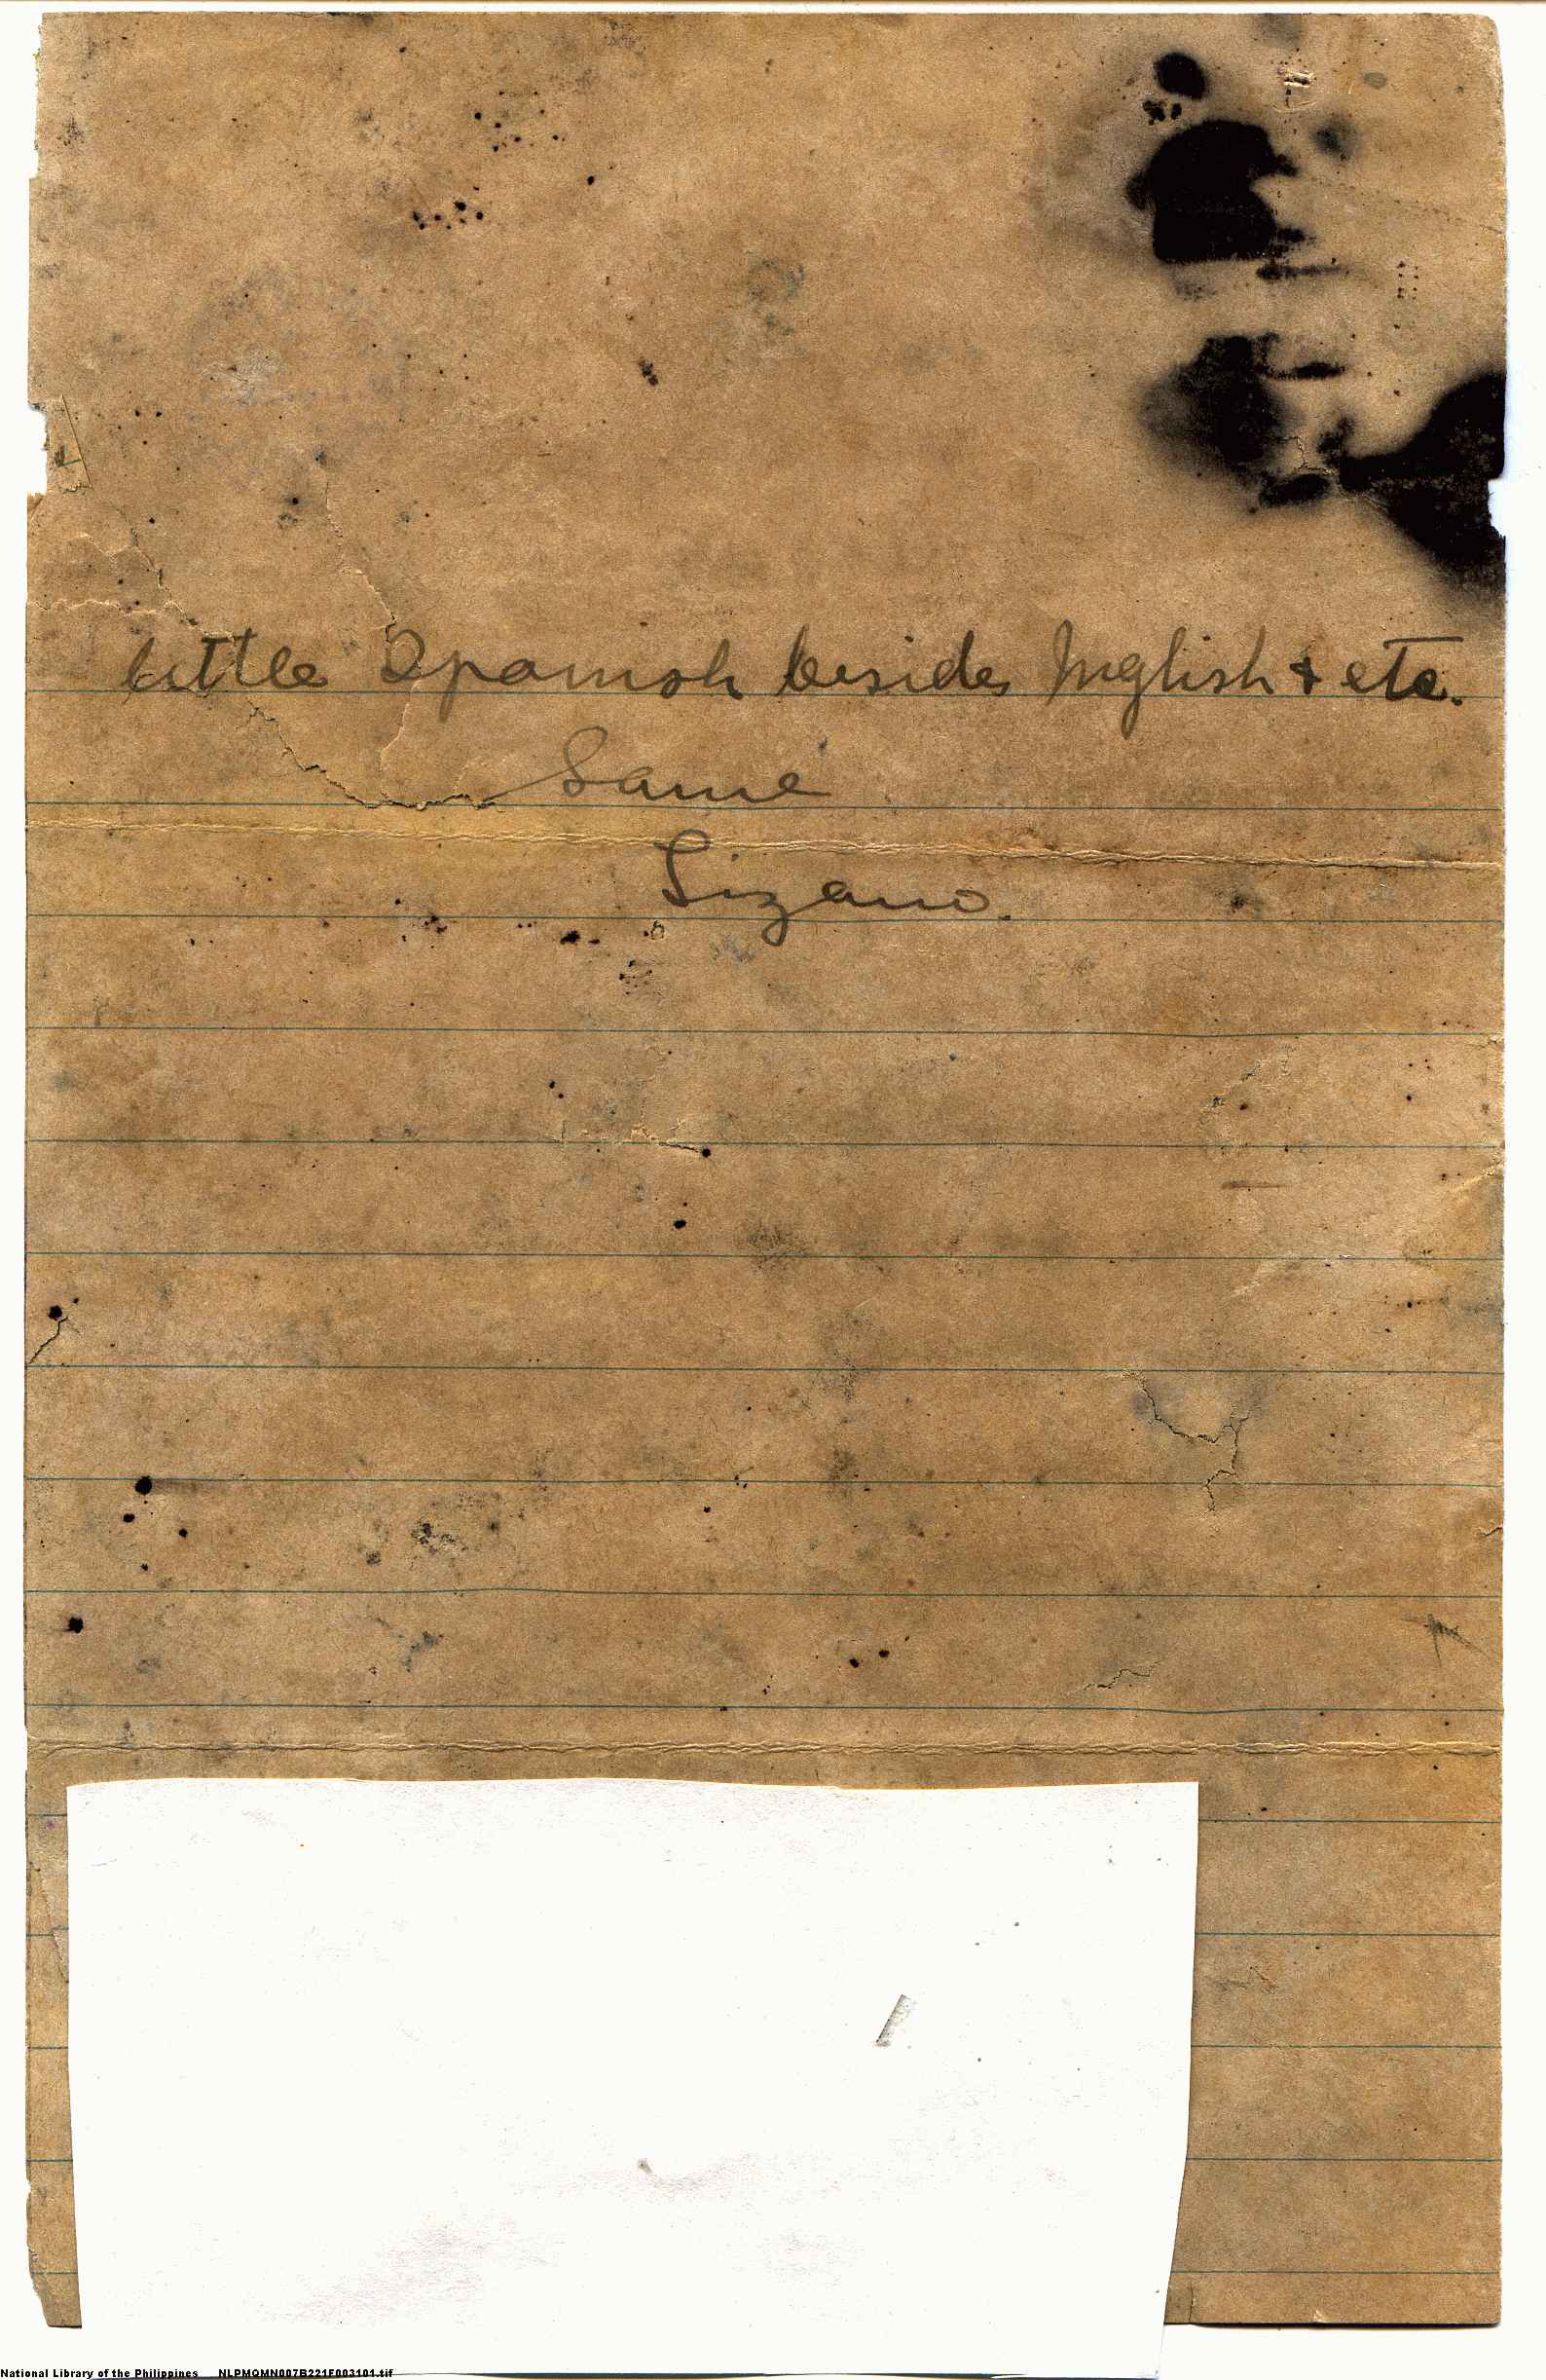 little Spanish beside Inglish & etc.
Same
Lizano.
National Library of the Philippines NLPMQMN007B221F003101.tif